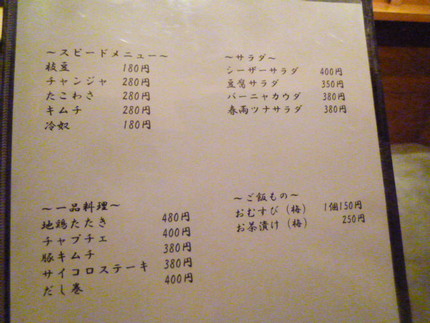 ～スピードメニュー～
枝豆 180円
チャンジャ 280円
たこわさ 280円
キムチ 280円
冷奴 180円
～サラダ～
シーザーサラダ 400円
豆腐サラダ 350円
バーニャカウダ 380円
春雨ツナサラダ 380円
～一品料理～
地鶏たたき 480円
チャプチェ 400円
豚キムチ 380円
サイコロステーキ 380円
だし巻 400円
～ご飯もの～
おむすび（梅） 1個150円
お茶漬け（梅） 250円